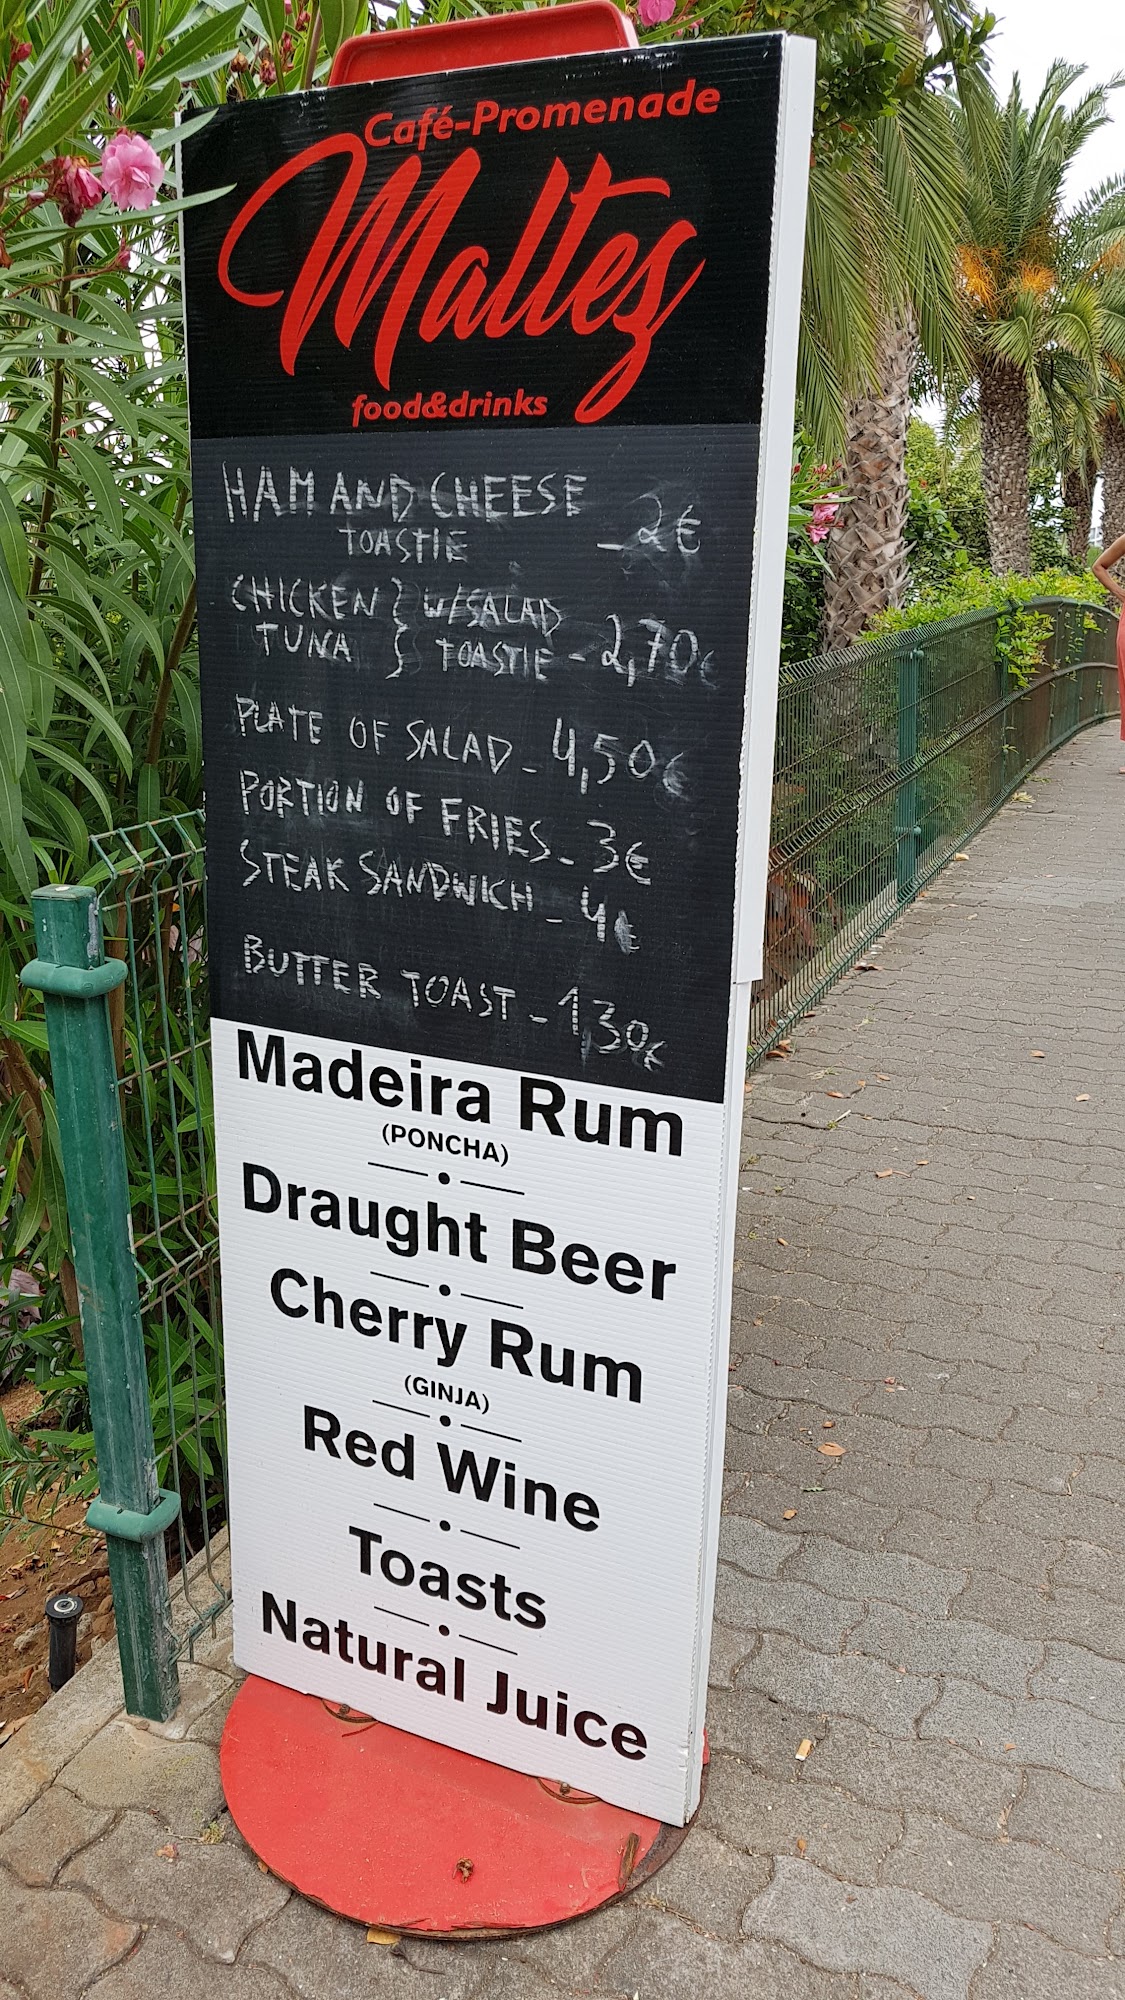 Café-Promenade
Maltez
food&drinks
HAM AND CHEESE
TOASTIE - 2€
CHICKEN } W/SALAD
TUNA } TOASTIE - 2,70€
PLATE OF SALAD - 4,50€
PORTION OF FRIES - 3€
STEAK SANDWICH - 4€
BUTTER TOAST - 1,30€
Madeira Rum
(PONCHA)
Draught Beer
Cherry Rum
(GINJA)
Red Wine
Toasts
Natural Juice